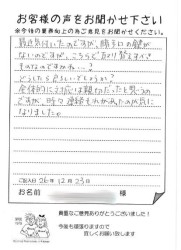 お客様の声をお聞かせ下さい
※今後の業務向上の為ご意見をお聞かせください。
最近気付いたのですが、勝手口の鍵が
ないのですが、こちらで取り替えするべき
ものなのですかね…?
どうしたら良いでしょうか?
全体的に対応は親切だったと思うの
ですが、時々連絡もれがあったのが気に
なりました。
ご記入日 26年12月23日
お名前 様
貴重なご意見ありがとうございました!
今後も頑張りますので
宜しくお願い致します